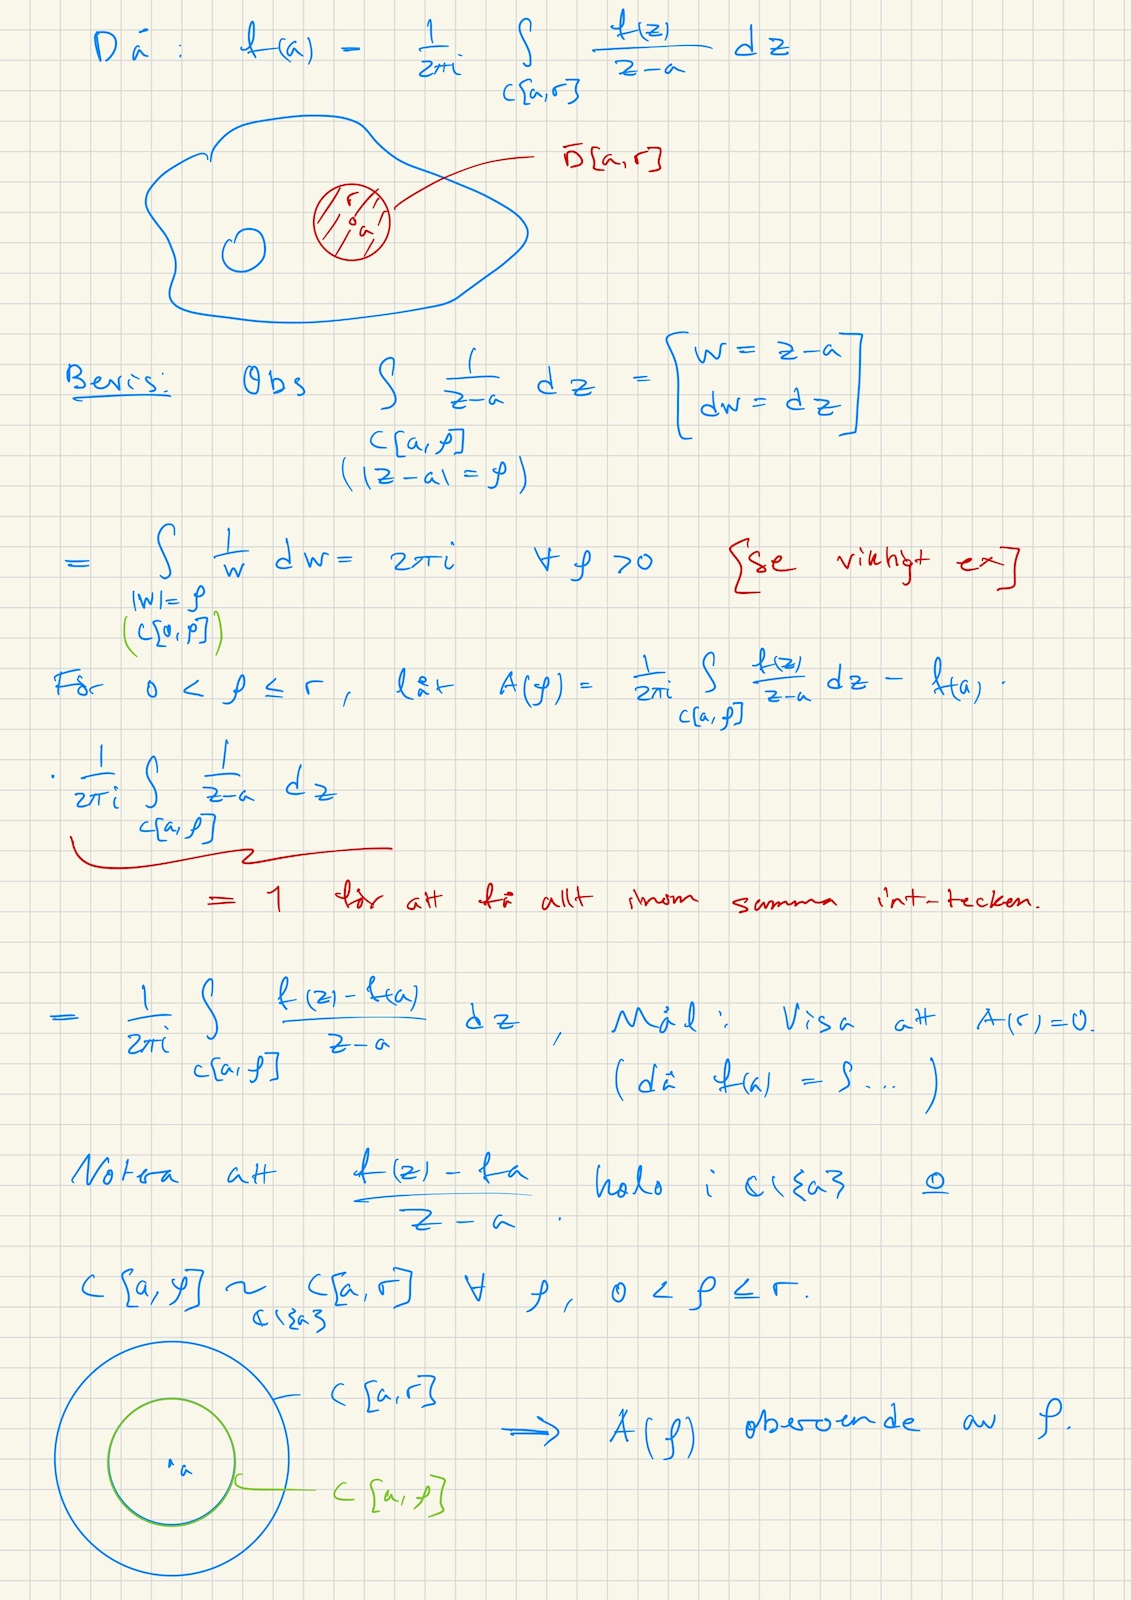 Då: f(a) = 1/2πi ∫_{C[a,r]} f(z)/(z-a) dz
D̄[a,r]
r
a
Bevis: Obs ∫_{C[a,ρ] (|z-a|=ρ)} 1/(z-a) dz = [w = z-a, dw = dz]
= ∫_{|w|=ρ (C[0,ρ])} 1/w dw = 2πi ∀ ρ > 0 [se viktigt ex]
För 0 < ρ ≤ r, låt A(ρ) = 1/2πi ∫_{C[a,ρ]} f(z)/(z-a) dz - f(a) ·
· 1/2πi ∫_{C[a,ρ]} 1/(z-a) dz
= 1 för att få allt inom samma int-tecken.
= 1/2πi ∫_{C[a,ρ]} (f(z)-f(a))/(z-a) dz, Mål: Visa att A(r)=0.
(då f(a) = ∫...)
Notera att (f(z)-fa)/(z-a) holo i ℂ\{a} o
C[a,ρ] ~_{ℂ\{a}} C[a,r] ∀ ρ, 0 < ρ ≤ r.
C[a,r]
⇒ A(ρ) oberoende av ρ.
a
C[a,ρ]